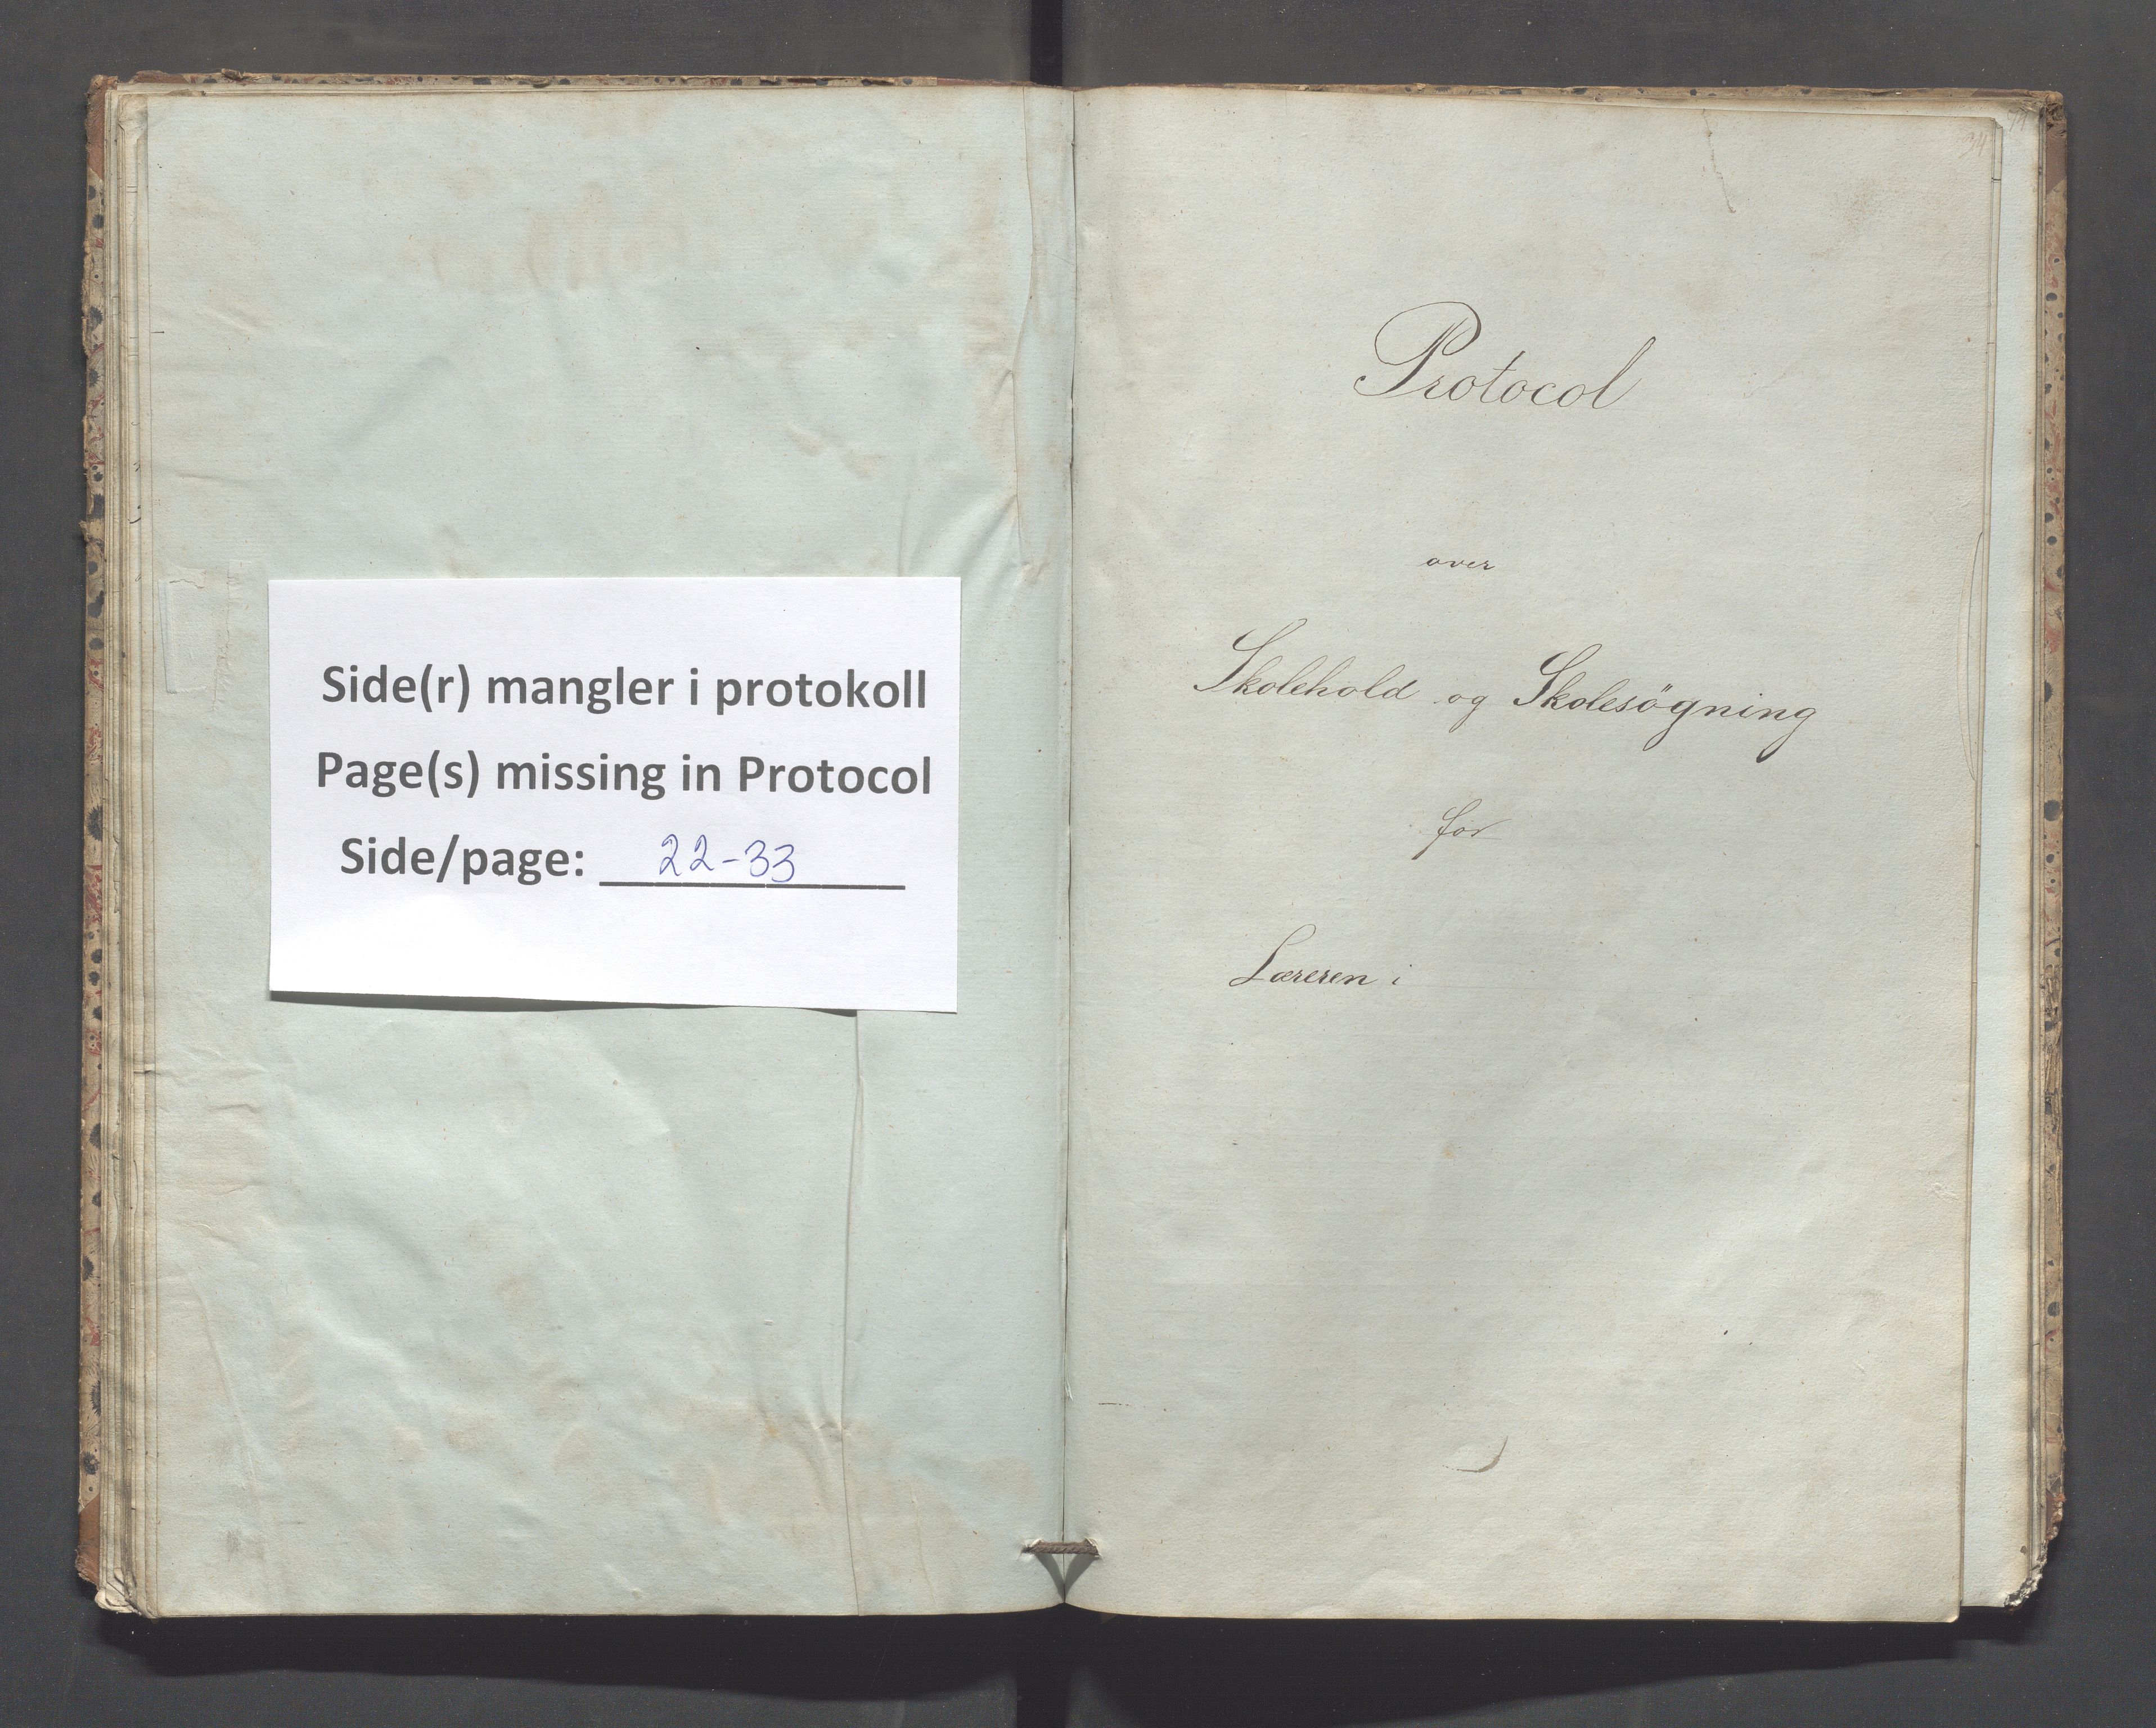 Side(r) mangler i protokoll
Page(s) missing in Protocol
Side/page: 22-33
34
Protocol
over
Skolehold og Skolesögning
for
Læreren i